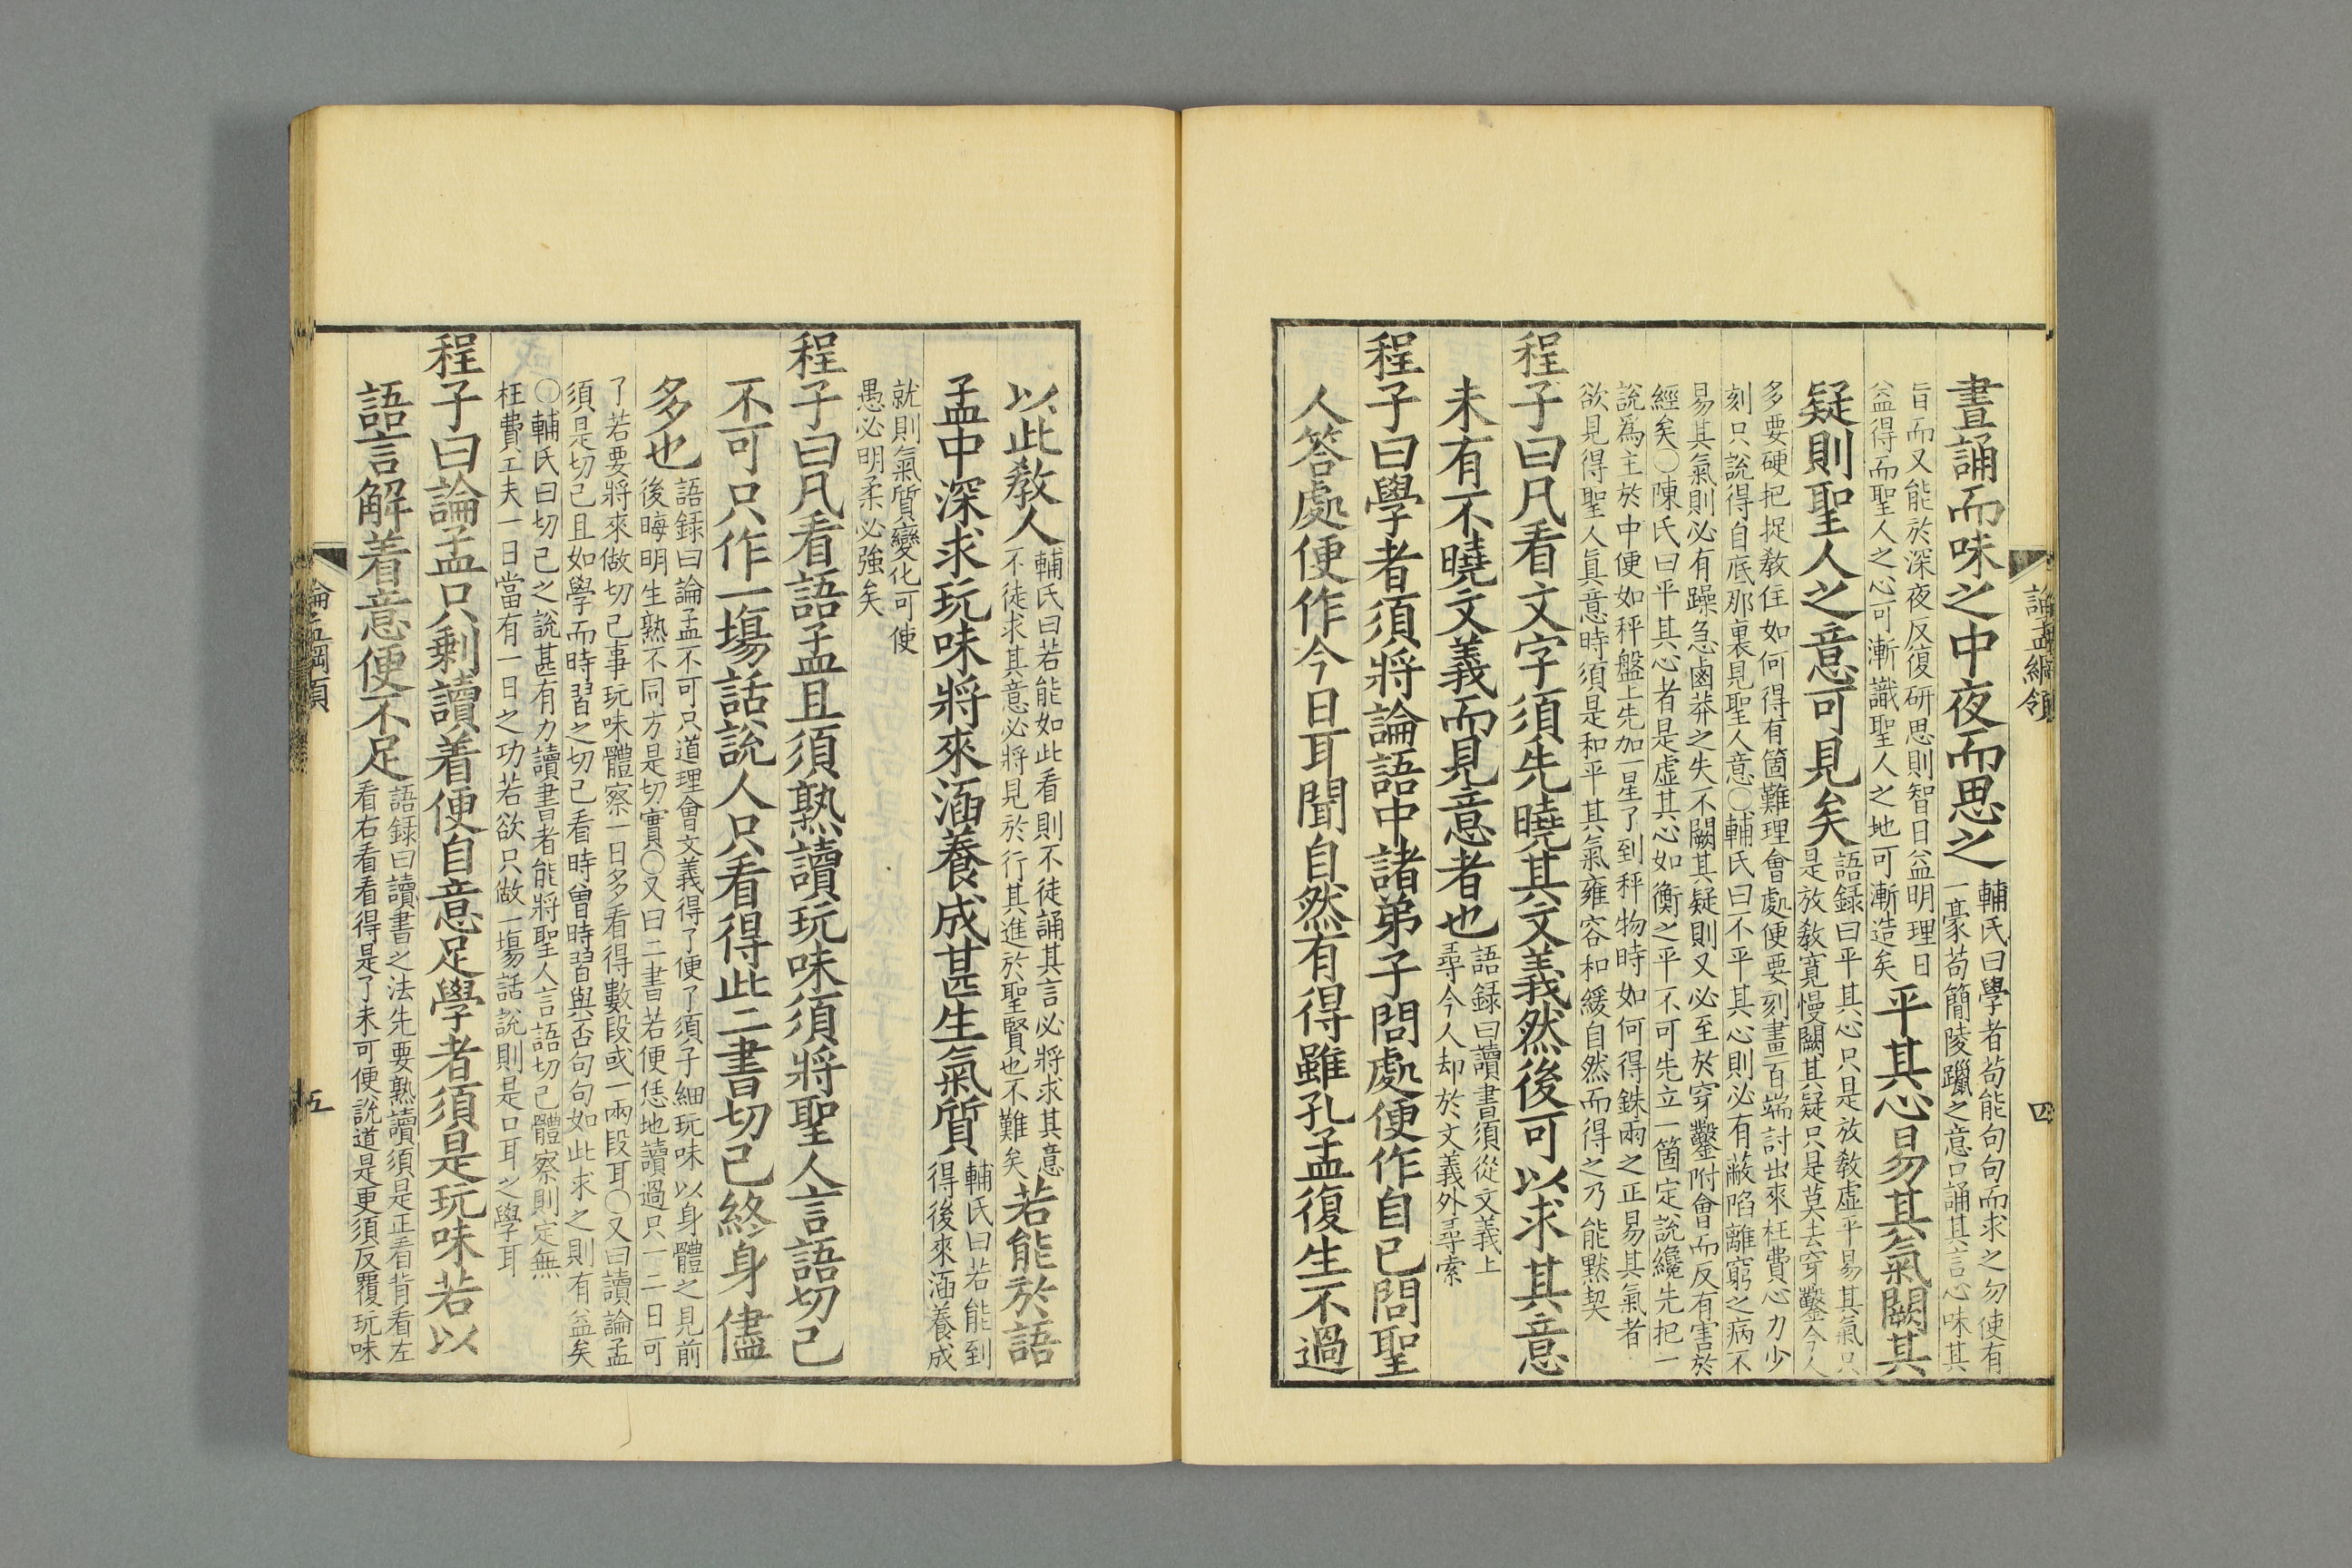 論孟綱領
四
晝誦而味之中夜而思之
輔氏曰學者苟能句句而求之勿使有
一豪苟簡陵躐之意口誦其言心味其
旨而又能於深夜反復研思則智日益明理日
益得而聖人之心可漸識聖人之地可漸造矣
平其心易其氣闕其
疑則聖人之意可見矣
語録曰平其心只是放教虚平易其氣只
是放教寛慢闕其疑只是莫去穿鑿今人
多要硬把捉教住如何得有箇難理會處便要刻畫百端討出來枉費心力少
刻只說得自底那裏見聖人意〇輔氏曰不平其心則必有蔽陷離窮之病不
易其氣則必有躁急鹵莽之失不闕其疑則又必至於穿鑿附會而反有害於
經矣〇陳氏曰平其心者是虚其心如衡之平不可先立一箇定說纔先把一
說為主於中便如秤盤上先加一星了到秤物時如何得銖兩之正易其氣者
欲見得聖人眞意時須是和平其氣雍容和緩自然而得之乃能黙契
程子曰凡看文字須先曉其文義然後可以求其意
未有不曉文義而見意者也
語録曰讀書須從文義上
尋今人却於文義外尋索
程子曰學者須將論語中諸弟子問處便作自已問聖
人答處便作今日耳聞自然有得雖孔孟復生不過
以此教人
輔氏曰若能如此看則不徒誦其言必將求其意
不徒求其意必將見於行其進於聖賢也不難矣
若能於語
孟中深求玩味將來涵養成甚生氣質
輔氏曰若能到
得後來涵養成
就則氣質變化可使
愚必明柔必強矣
程子曰凡看語孟且須熟讀玩味須將聖人言語切己
不可只作一場話說人只看得此二書切己終身儘
多也
語録曰論孟不可只道理會文義得了便了須子細玩味以身體之見前
後晦明生熟不同方是切實〇又曰二書若便恁地讀過只一二日可
了若要將來做切己事玩味體察一日多看得數段或一兩段耳〇又曰讀論孟
須是切己且如學而時習之切己看時曽時習與否句句如此求之則有益矣
〇輔氏曰切己之說甚有力讀書者能將聖人言語切己體察則定無
枉費工夫一日當有一日之功若欲只做一場話說則是口耳之學耳
程子曰論孟只剩讀着便自意足學者須是玩味若以
語言解着意便不足
語録曰讀書之法先要熟讀須是正看背看左
看右看看得是了未可便說道是更須反覆玩味
論孟綱領
五